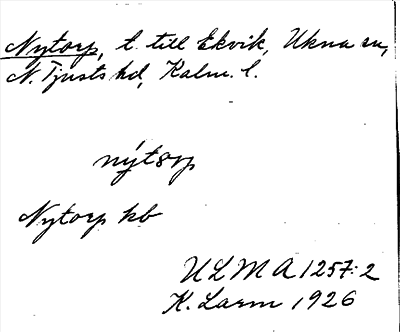 Nytorp, t. till Ekvik, Ukna sn,
N. Tjusts hd, Kalm. l.
nýtorp
Nytorp kb
ULMA 1257:2
K. Larm 1926